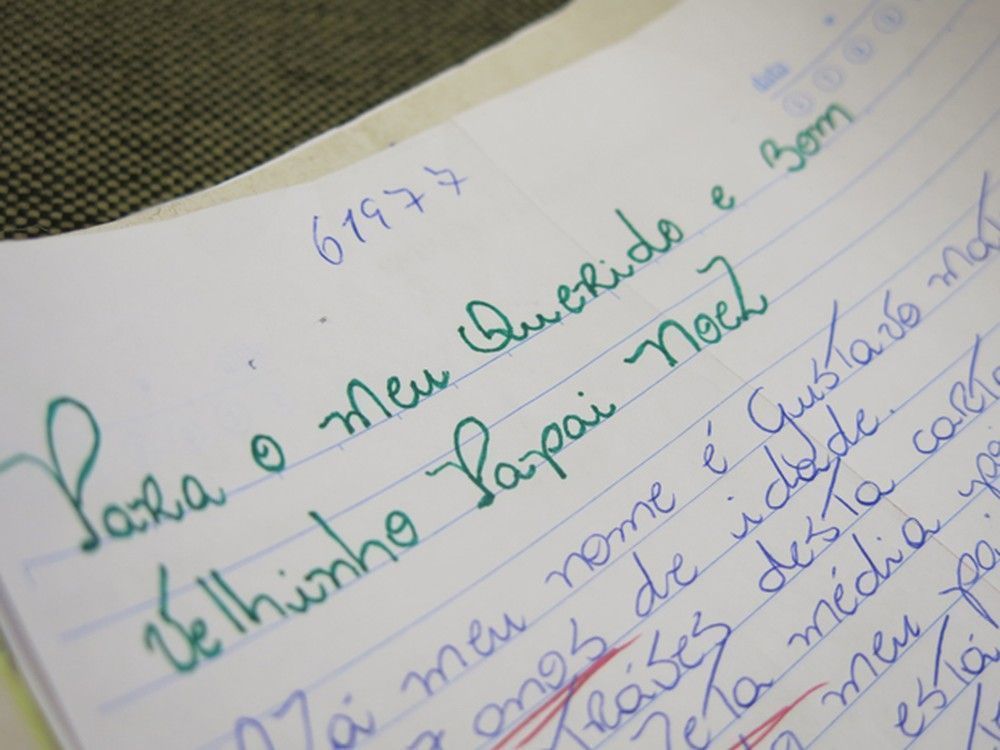 data
61977
Para o meu Querido e Bom
Velhinho Papai Noel
meu nome é Gustavo
anos de idade.
desta
média
meu
está